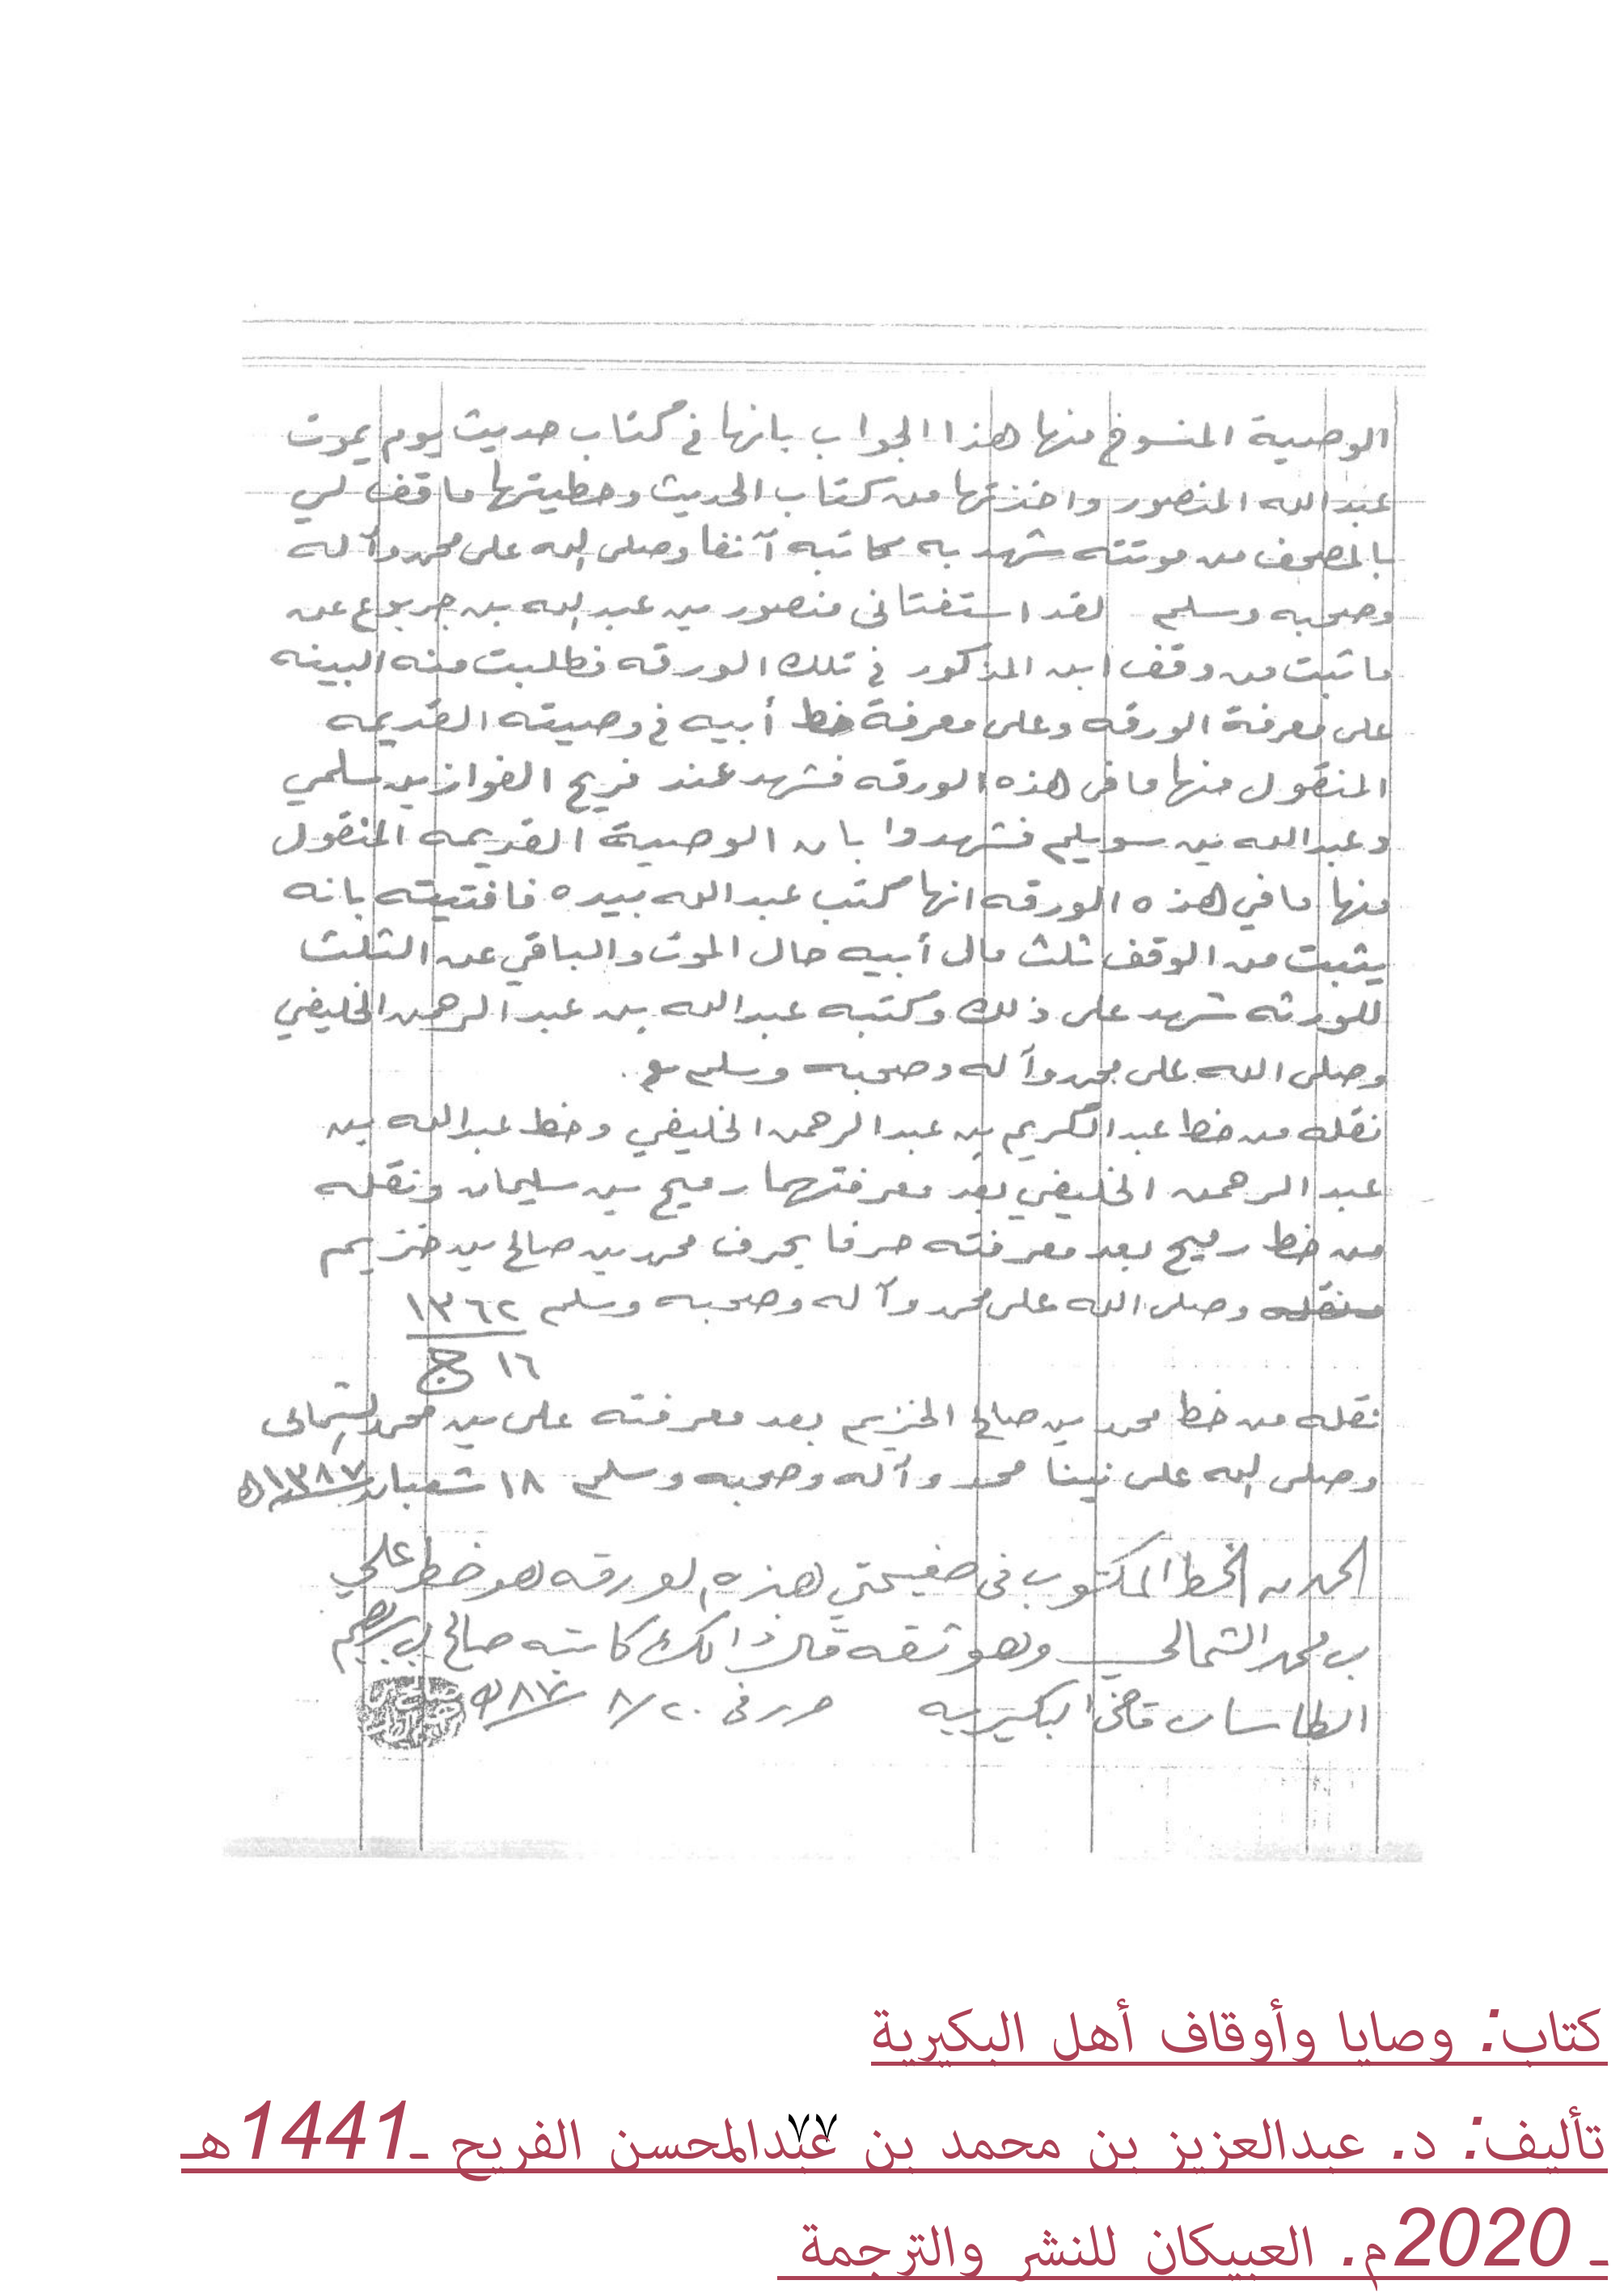 الوصية المنسوخ منها هذا الجواب بانها في كتاب حديث يوم يموت
عبدالله المنصور واخذتها من كتاب الحديث وحطيتها ماقف لي
بالمصحف من موتته شهد به كاتبه آنفا وصلى الله على محمد وآله
وصحبه وسلم لقد استفتاني منصور بن عبدالله بن جربوع عن
ماثبت من وقف ابن المذكور في تلك الورقه فطلبت منه البينه
على معرفة الورقه وعلى معرفة خط أبيه في وصيته القديمه
المنقول منها مافي هذه الورقه فشهد عند فريح الفواز بن سلمي
وعبدالله بن سويلم فشهدوا بان الوصية القديمه المنقول
منها مافي هذه الورقه انها كتب عبدالله بيده فافتيته بانه
يثبت من الوقف ثلث مال أبيه حال الموت والباقي عن الثلث
للورثه شهد على ذلك وكتبه عبدالله بن عبدالرحمن الخليفي
وصلى الله على محمد وآله وصحبه وسلم
نقله من خط عبدالكريم بن عبدالرحمن الخليفي وخط عبدالله بن
عبدالرحمن الخليفي بعد معرفتهما رميح بن سليمان ونقله
من خط رميح بعد معرفته حرفا بحرف محمد بن صالح بن خزيم
وصلى الله على محمد وآله وصحبه وسلم ١٣٦٢
١٦ ج
نقله من خط محمد بن صالح الخزيم بعد معرفته على بن محمد الشمالى
وصلى الله على نبينا محمد وآله وصحبه وسلم ١٨ شعبان ١٣٨٧ه
الحمد لله الخط المكتوب في صفيحتي هذه الورقه هو خط علي
بن محمد الشمالي وهو ثقه قال ذالك كاتبه صالح بن ابراهيم
الطاسان قاضي البكيريه حرر في ٢٠/٨/٨٧ه
٧٧
كتاب: وصايا وأوقاف أهل البكيرية
تأليف: د. عبدالعزيز بن محمد بن عبدالمحسن الفريح ـ1441هـ
ـ 2020م. العبيكان للنشر والترجمة